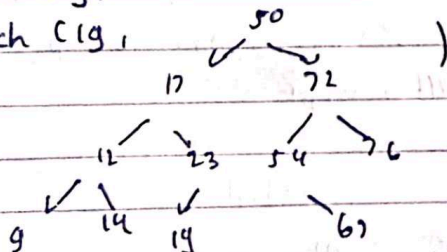 50
ch (19,          )
17 72
12 23 54 76
9 14 19 67